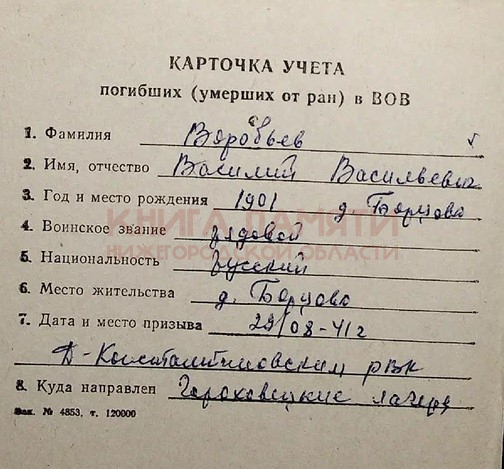 КАРТОЧКА УЧЕТА
погибших (умерших от ран) в ВОВ
1. Фамилия Воробьев
2. Имя, отчество Василий Васильевич
3. Год и место рождения 1901 д. Борцово
КНИГА ПАМЯТИ
4. Воинское звание рядовой
НИЖЕГОРОДСКОЙ ОБЛАСТИ
5. Национальность русский
6. Место жительства д. Борцово
7. Дата и место призыва 29/08-41г
Д-Константиновским рвк
8. Куда направлен Гороховецкие лагеря
Зак. № 4853, т. 120000